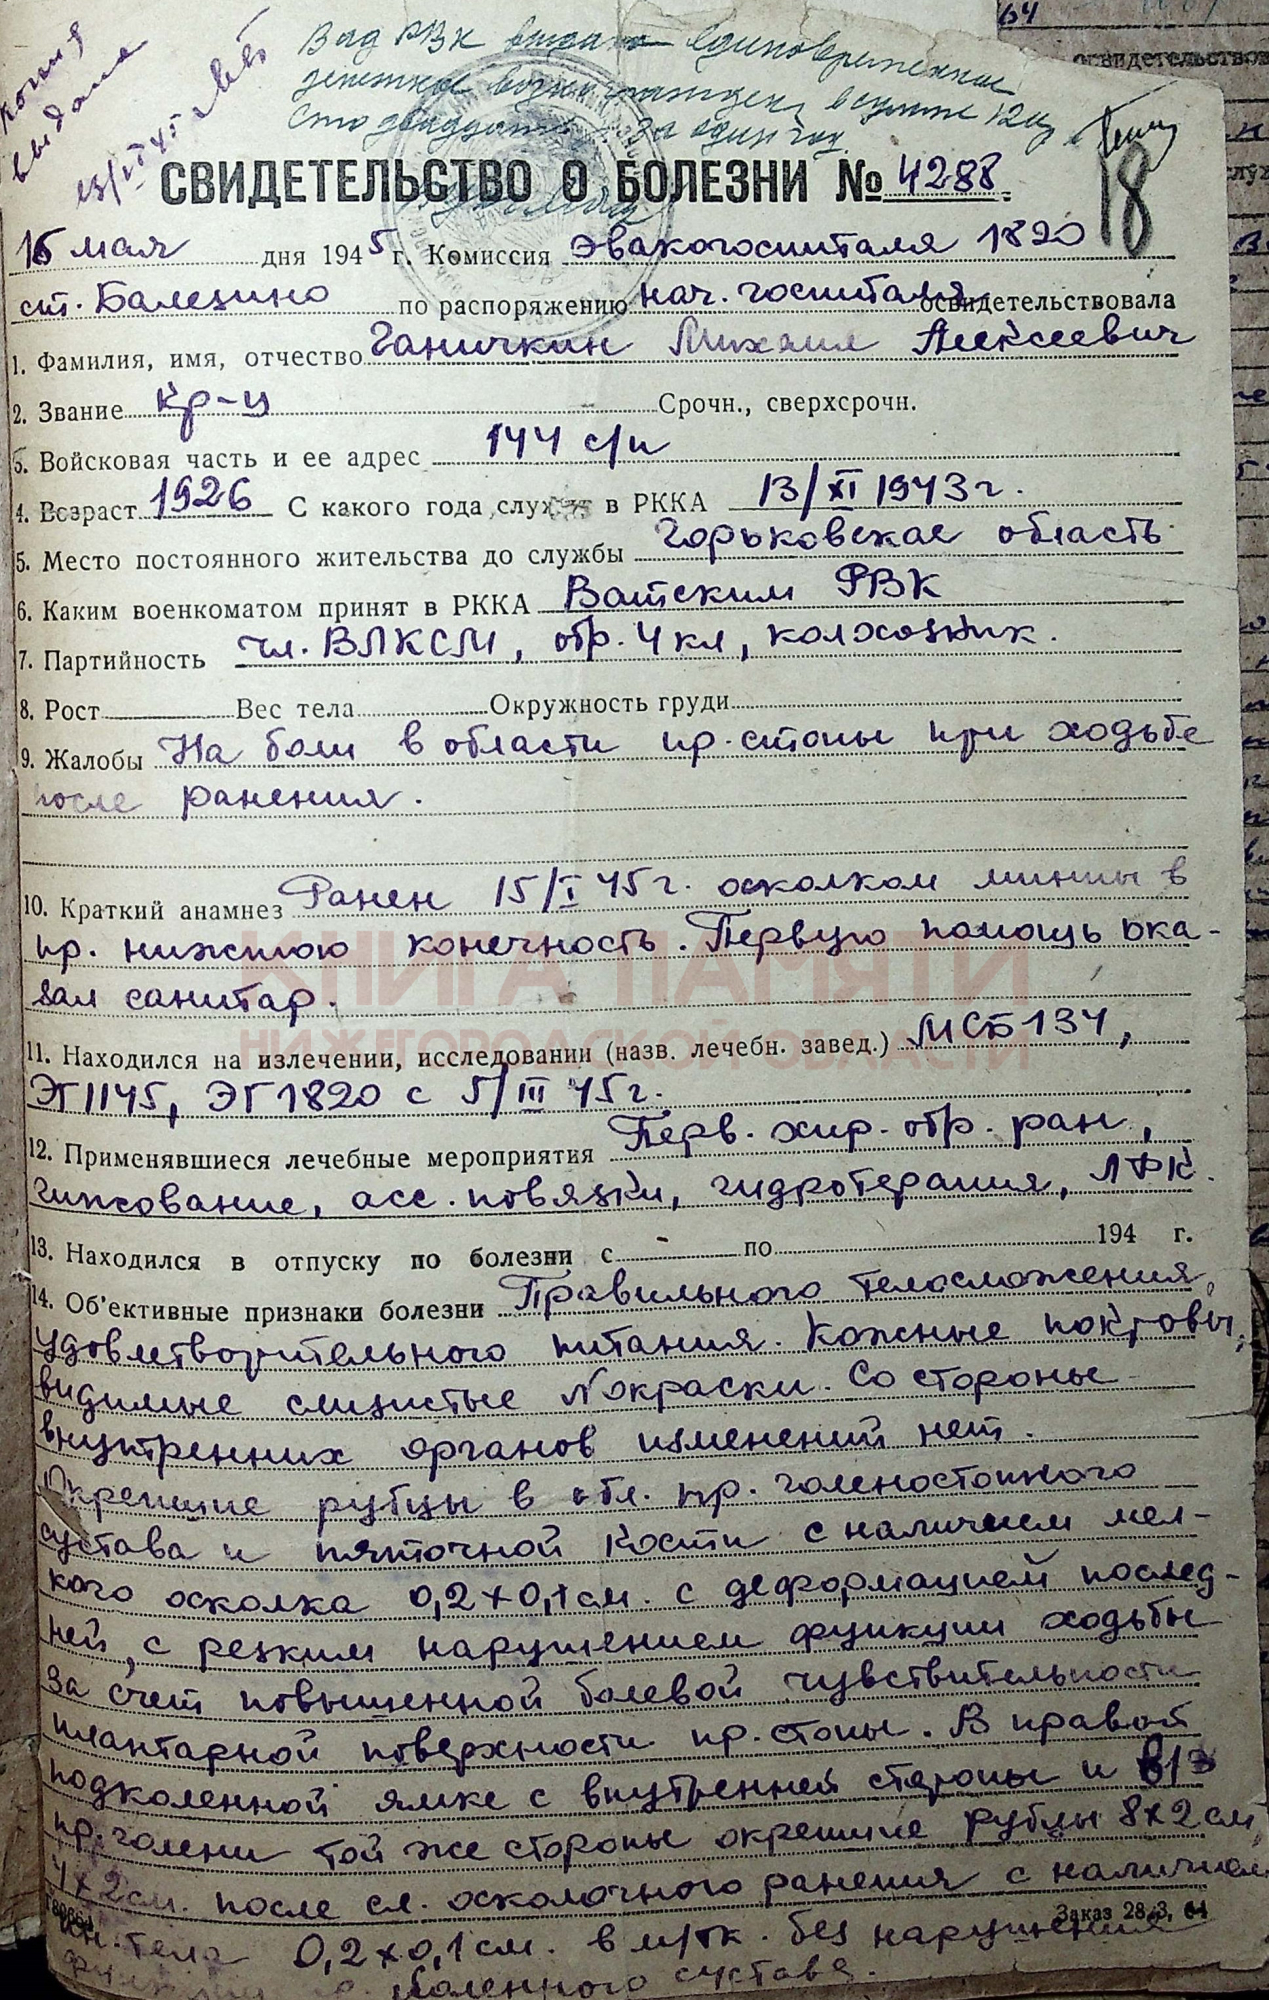 64
освидетельствов
копия
выдана
Вад РВК выдано единовременное
денежное вознагражден. в сумме 120
Сто двадцать за один год.
18
СВИДЕТЕЛЬСТВО О БОЛЕЗНИ № 4288.
15 мая дня 1945 г. Комиссия эвакогоспиталя 1820
ст. Балезино по распоряжению нач. госпиталя освидетельствовала
1. Фамилия, имя, отчество Ганичкин Михаил Алексеевич
2. Звание Кр-ц Срочн., сверхсрочн.
3. Войсковая часть и ее адрес 144 с/п
4. Возраст 1926 С какого года служит в РККА 13/XI 1943 г.
5. Место постоянного жительства до службы Горьковская область
6. Каким военкоматом принят в РККА Ватским РВК
7. Партийность чл. ВЛКСМ, обр. 4 кл, колхозник.
8. Рост Вес тела Окружность груди
9. Жалобы На боли в области пр. стопы при ходьбе
после ранения.
10. Краткий анамнез Ранен 15/I 45 г. осколком мины в
пр. нижнюю конечность. Первую помощь ока-
зал санитар.
КНИГА ПАМЯТИ
НИЖЕГОРОДСКОЙ ОБЛАСТИ
11. Находился на излечении, исследовании (назв. лечебн. завед.) МСБ 134,
ЭГ 1145, ЭГ 1820 с 5/III 45 г.
12. Применявшиеся лечебные мероприятия Перв. хир. обр. ран,
гипсование, асс. повязки, гидротерапия, ЛФК.
13. Находился в отпуску по болезни с - по 194 г.
14. Об'ективные признаки болезни Правильного телосложения,
удовлетворительного питания. Кожные покровы,
видимые слизистые N окраски. Со стороны
внутренних органов изменений нет.
Окрепшие рубцы в обл. пр. голеностопного
сустава и пяточной кости с наличием мел-
кого осколка 0,2х0,1 см. с деформацией послед-
ней, с резким нарушением функции ходьбы
за счет повышенной болевой чувствительности
плантарной поверхности пр. стопы. В правой
подколенной ямке с внутренней стороны и в/3
пр. голени той же стороны окрепшие рубцы 8х2 см,
4х2 см. после сл. осколочного ранения с наличием
Заказ 28/3, 44
ин. тела 0,2х0,1 см. в м/тк. без нарушения
коленного сустава.